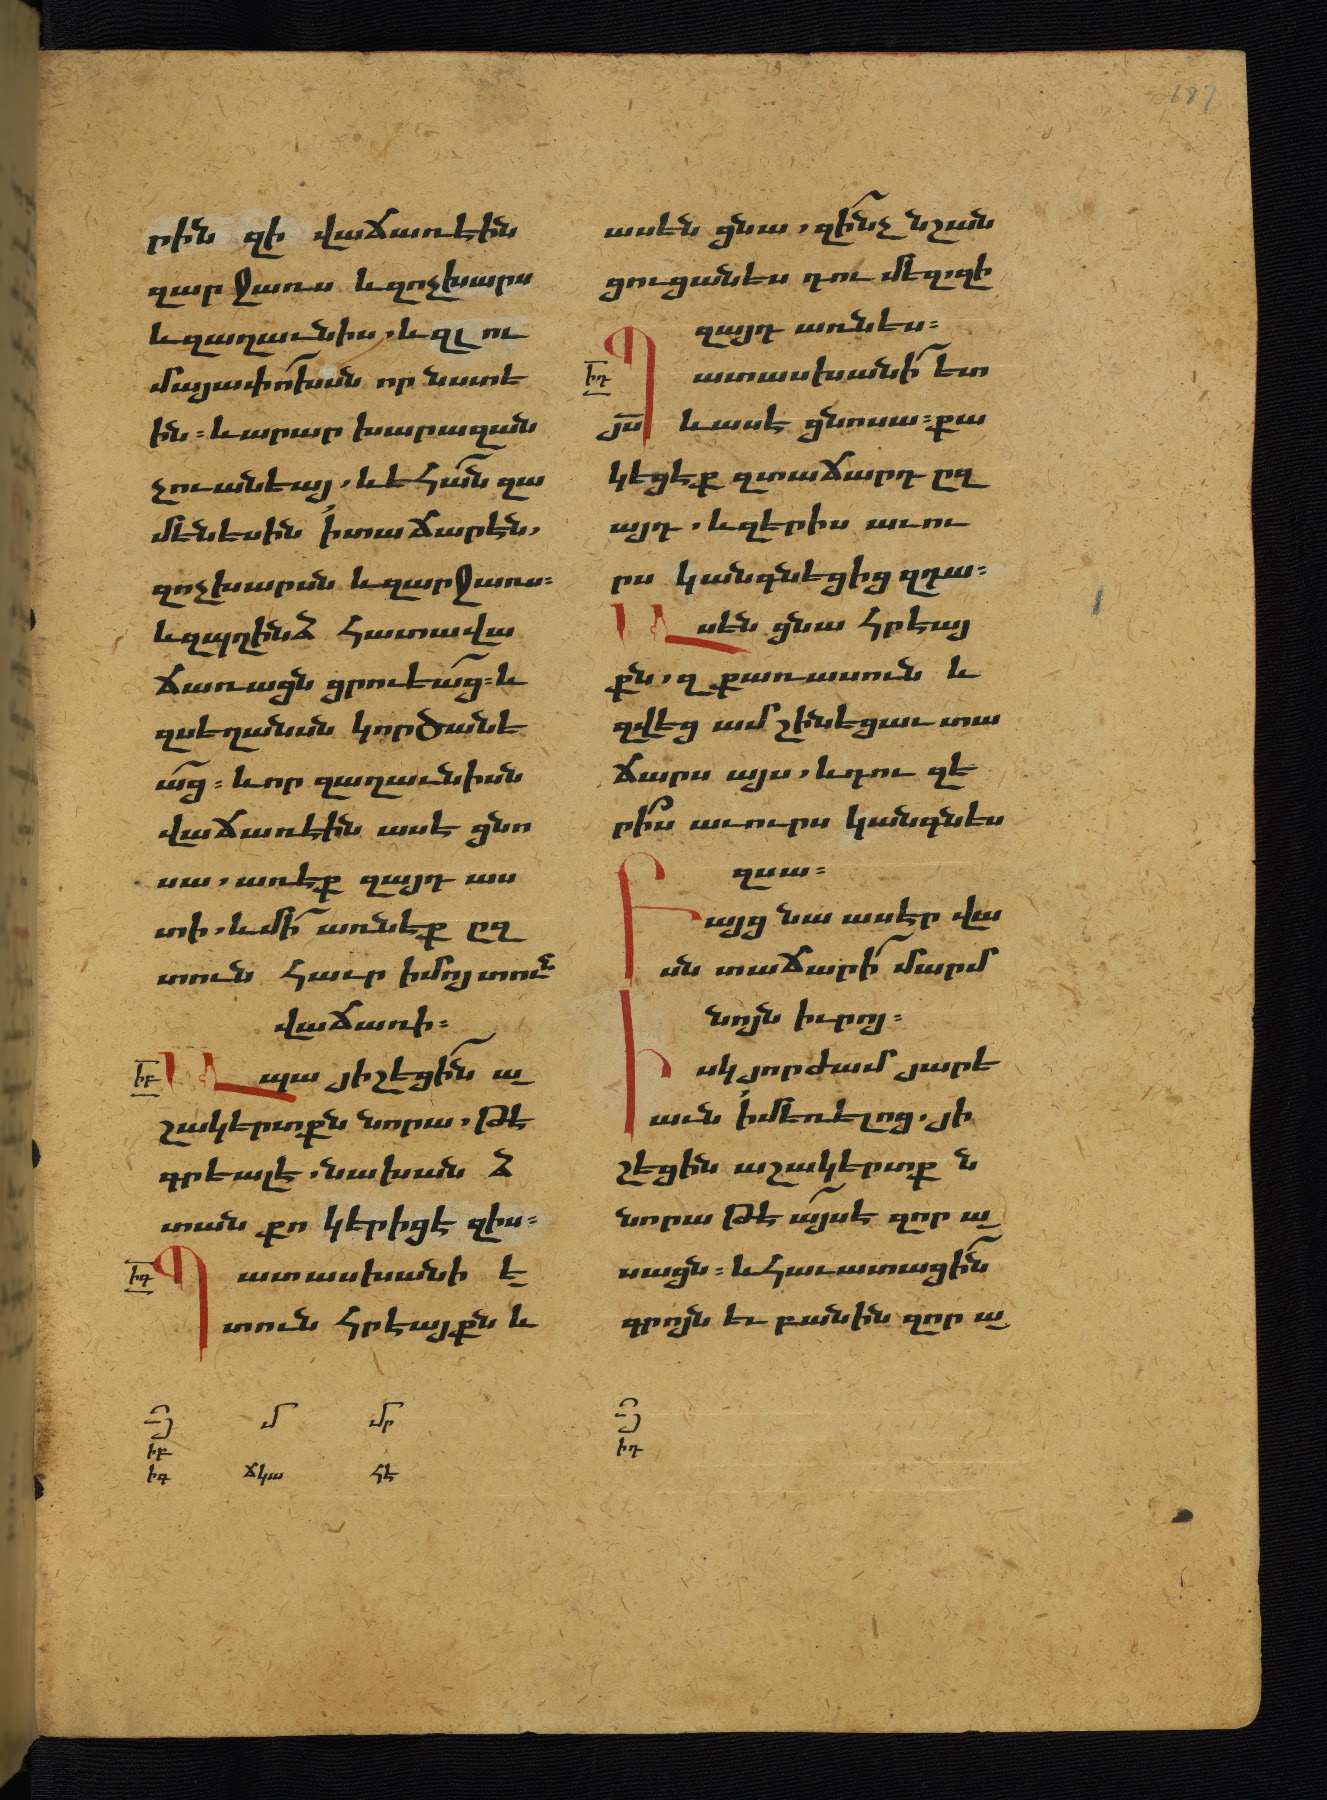 187
րին զի վաճառէին
զարջառս և զոչխարս
և զաղաւնիս, և զլու
մայափոխսն որ նստէ
ին։ և արար խարազան
չուանեայ, և եհան զա
մենեսին ի տաճարէն,
զոչխարսն և զարջառս։
և զպղինձ հատավա
ճառացն ցրուեաց։ և
զսեղանսն կործանե
աց։ և որ զաղաւնիսն
վաճառէին ասէ ցնո
սա, առէք զայդ աս
տի, և մի առնէք զ
տուն հաւր իմոյ տուն
վաճառի։
իբ Ապա յիշեցին ա
շակերտքն նորա, թէ
գրեալ է, նախանձ
տան քո կերիցէ զիս։
իգ Պատասխանի ե
տուն հրէայքն և
ասեն ցնա, զինչ նշան
ցուցանես դու մեզ, զի
զայդ առնես։
իդ Պատասխանի ետ
յս և ասէ ցնոսա։ քա
կեցէք զտաճարդ ըզ
այդ, և զերիս աւու
րս կանգնեցից զդա։
Ասեն ցնա հրէայ
քն, զքառասուն և
զվեց ամ շինեցաւ տա
ճարս այս, և դու զե
րիս աւուրս կանգնես
զսա։
Բայց նա ասէր վա
սն տաճարի մարմ
նոյն իւրոյ։
Իսկ յորժամ յարե
աւն ի մեռելոց, յի
շեցին աշակերտքն
նորա թէ այսէ զոր ա
սացն։ և հաւատացին
գրոյն եւ բանին զոր ա
յ մ մր
իբ
իգ ճկա հէ
յ
իդ